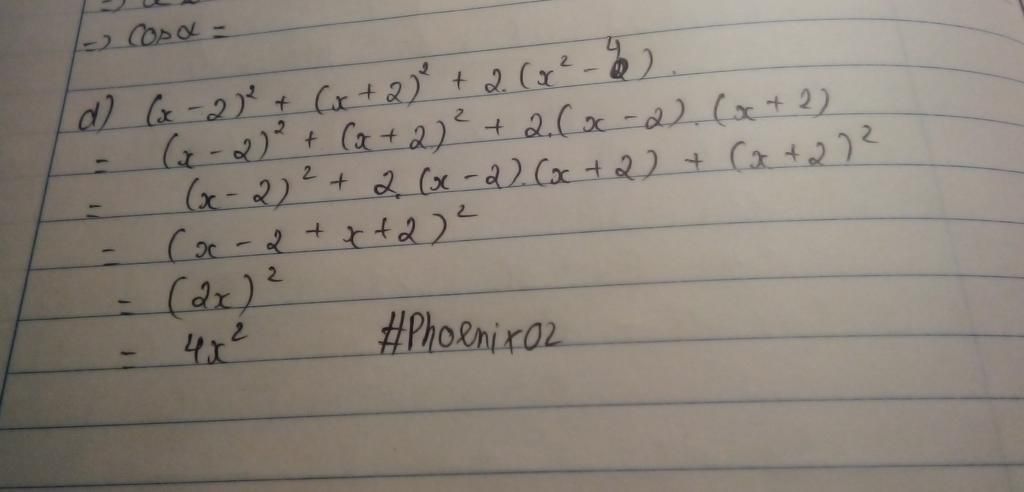 => cos α =
d) (x - 2)² + (x + 2)² + 2.(x² - 4).
= (x - 2)² + (x + 2)² + 2.(x - 2).(x + 2)
= (x - 2)² + 2.(x - 2).(x + 2) + (x + 2)²
= (x - 2 + x + 2)²
= (2x)²
= 4x² #Phoenix02